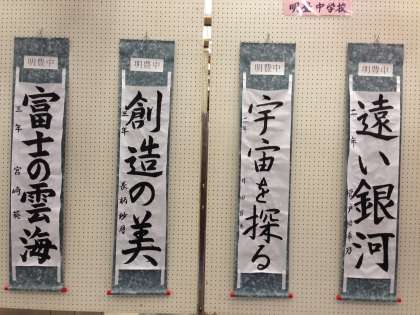 明豊中学校
明豊中
遠い銀河
二年
明豊中
宇宙を探る
二年
明豊中
創造の美
三年
明豊中
富士の雲海
三年 宮崎葵